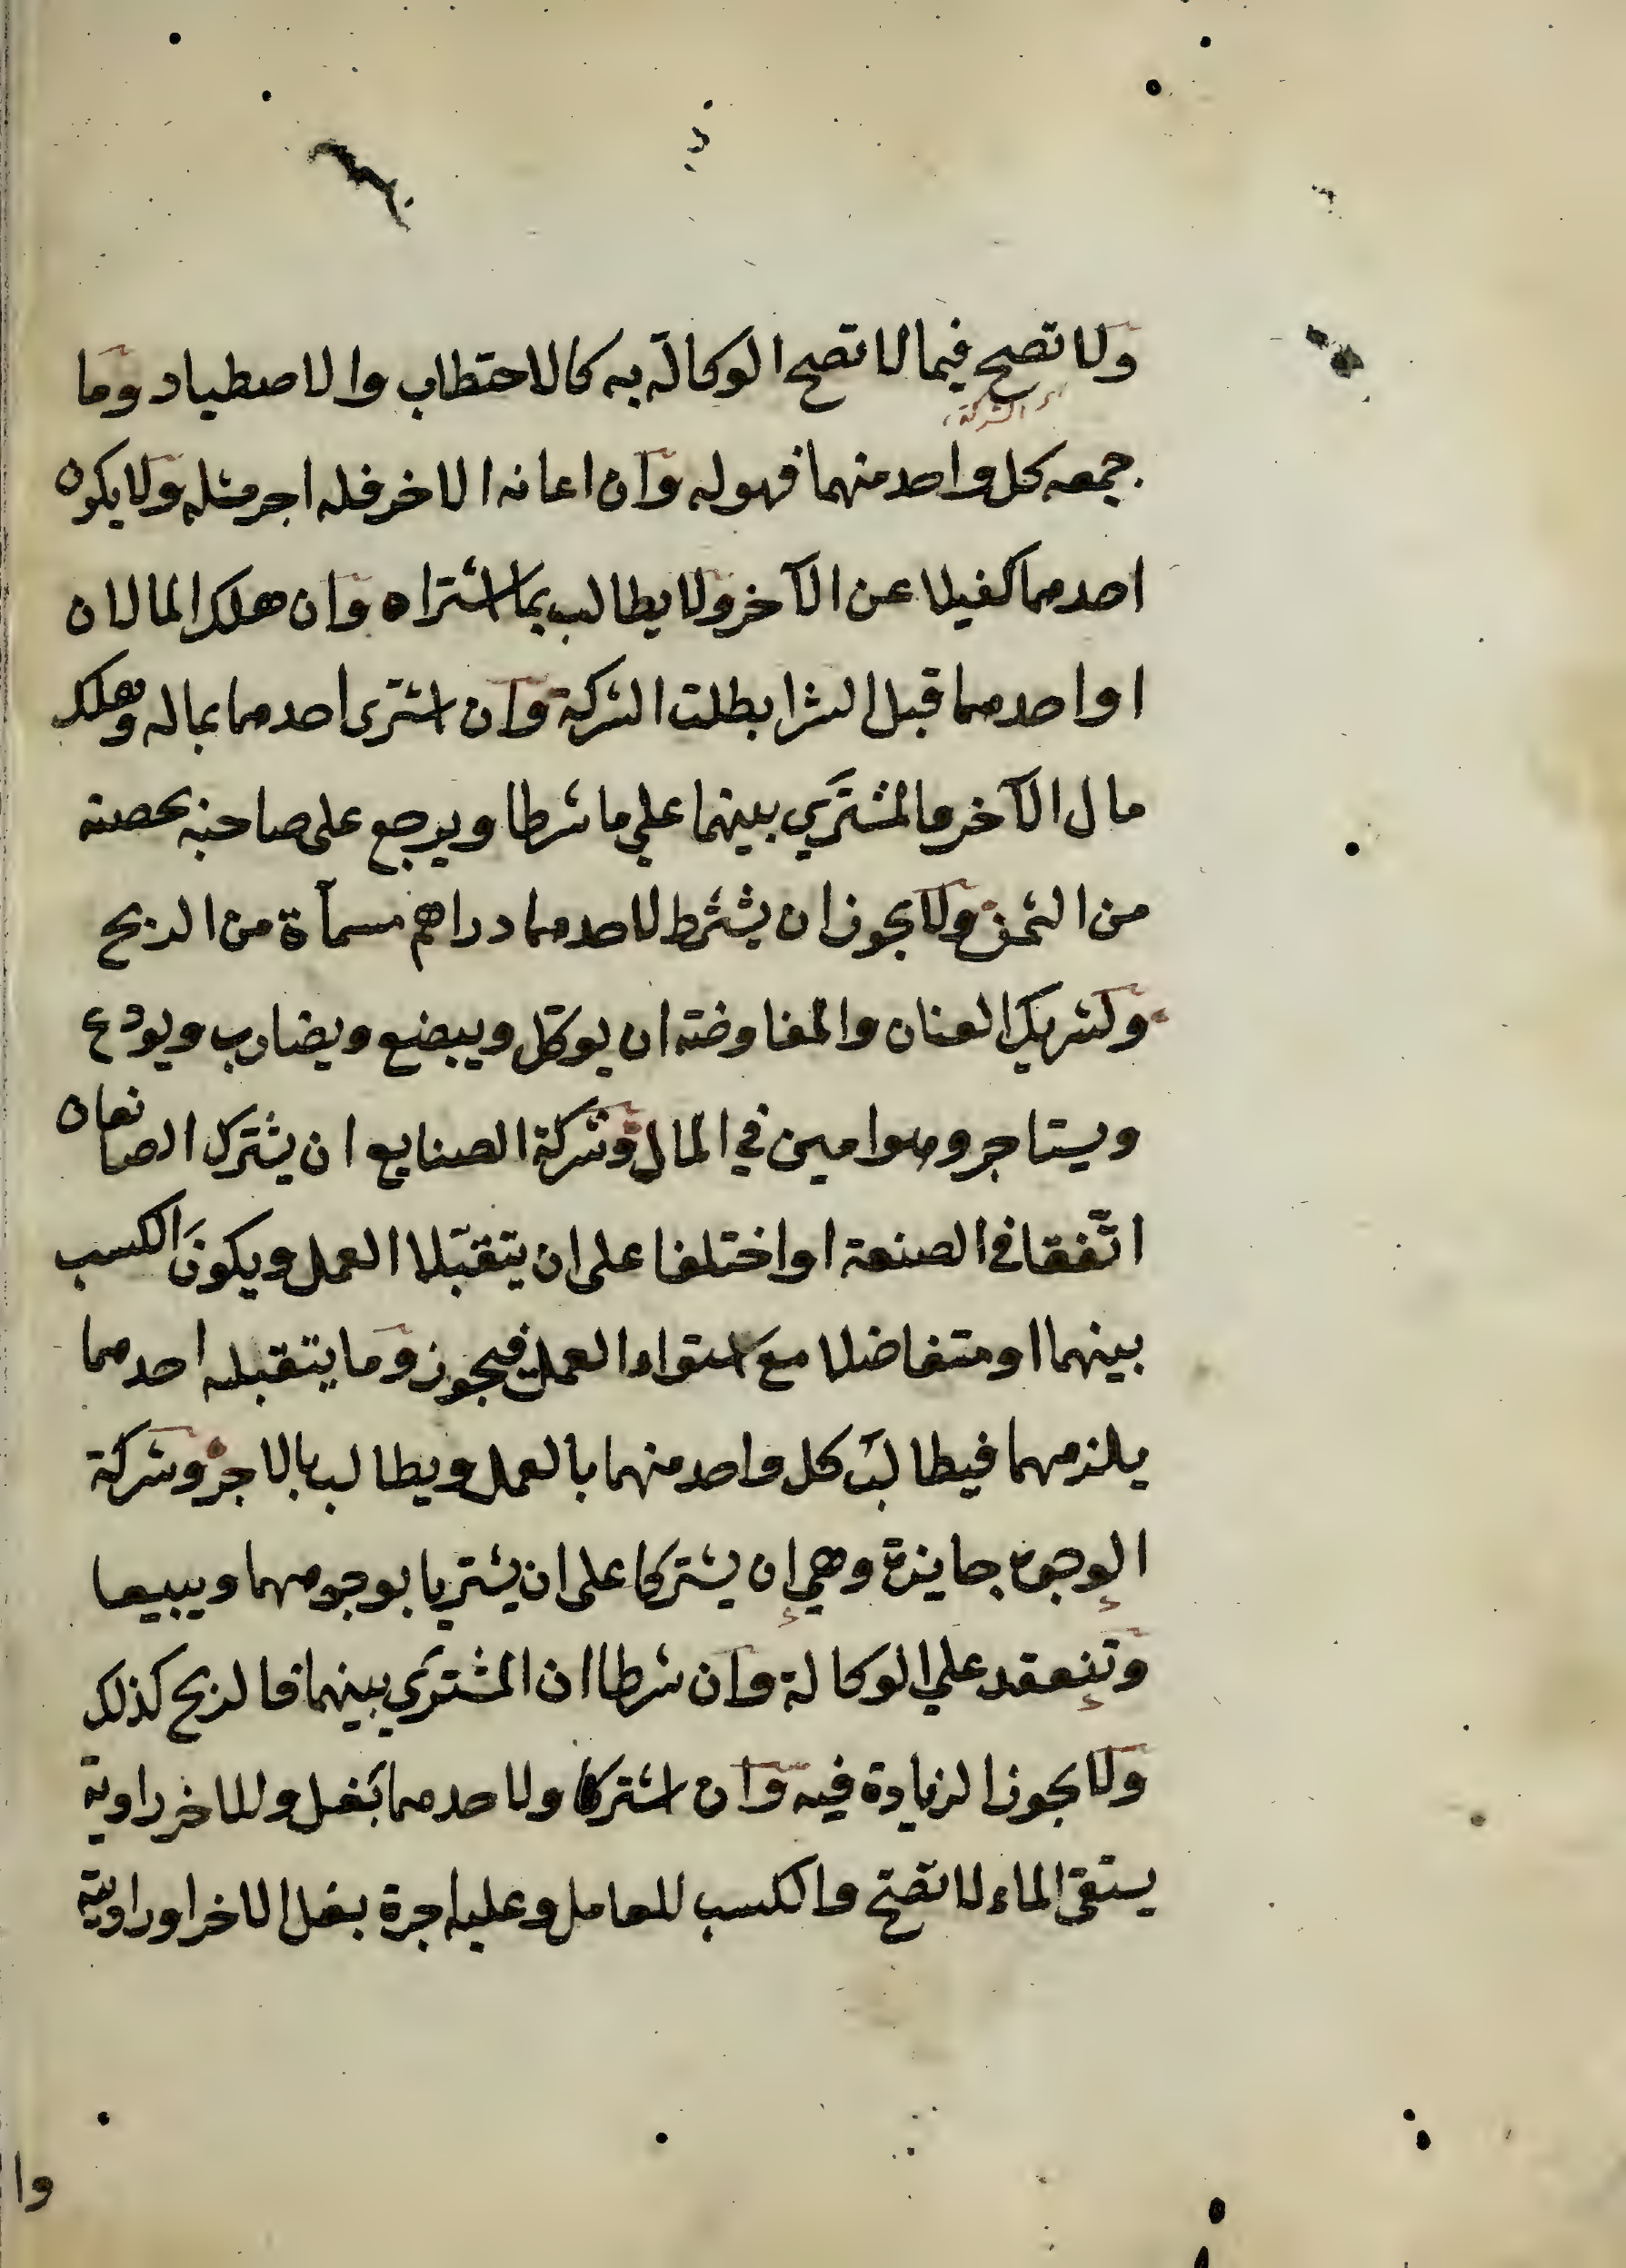 ولا تصح فيما لا تصح الوكالة به كالاحتطاب والاصطياد وما
اي الشركة
جمعه كل واحد منهما فهو له وان اعانه الاخر فله اجر مثله ولا يكون
احدهما كفيلا عن الآخر ولا يطالب بما اشتراه وان هلك المالان
او احدهما قبل الشرا بطلت الشركة وان اشترى احدهما بماله وهلك
مال الآخر فالمشتَري بينهما علي ما شرطا ويرجع على صاحبه بحصته
من الثمن ولا يجوز ان يشترط لاحدهما دراهم مسمآة من الربح
ولشريك العنان والمفاوضة ان يوكّل ويبضع ويضارب ويودع
ويستاجر وهو امين في المال وشركة الصنايع ان يشترك الصانعان
اتّفقا في الصنعة او اختلفا على ان يتقبّلا العمل ويكونَ الكسب
بينهما او متفاضلا مع استواء العمل فيجوز وما يتقبله احدهما
يلزمهما فيطالَب كل واحد منهما بالعمل ويطالب بالاجر وشركة
الوجوه جايزة وهي ان يشتركا على ان يشتريا بوجوههما ويبيعا
وتنعقد علي الوكالة وان شرطا ان المشترَي بينهما فالربح كذلك
ولا يجوز الزيادة فيه وان اشتركا ولاحدهما بَغل وللاخر راوية
يستقى الماء لا تصّح والكسب للعامل وعليه اجرة بغل الاخر او راويته
وا